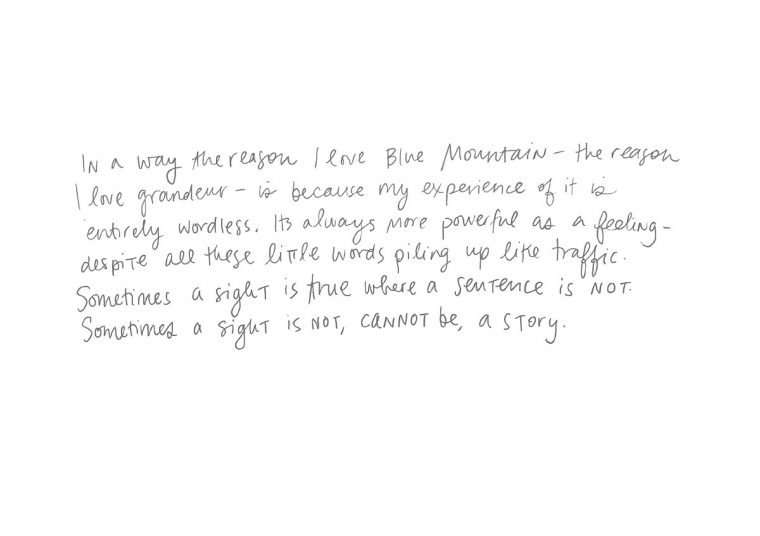 In a way the reason I love Blue Mountain – the reason
I love grandeur – is because my experience of it is
entirely wordless. Its always more powerful as a feeling –
despite all these little words piling up like traffic.
Sometimes a sight is true where a sentence is NOT.
Sometimes a sight is NOT, CANNOT be, a story.